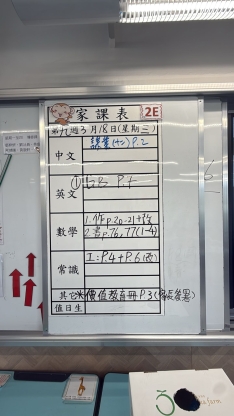 家課表 2E
第九週3月18日(星期三)
中文
課業(十二) P.2
英文
數學
1. 作 P.20-21+改
2. 書 P.76, 77(1-4)
常識
工:P.4+P.6(改)
其它 *價值教育冊P.3(家長簽署)
值日生